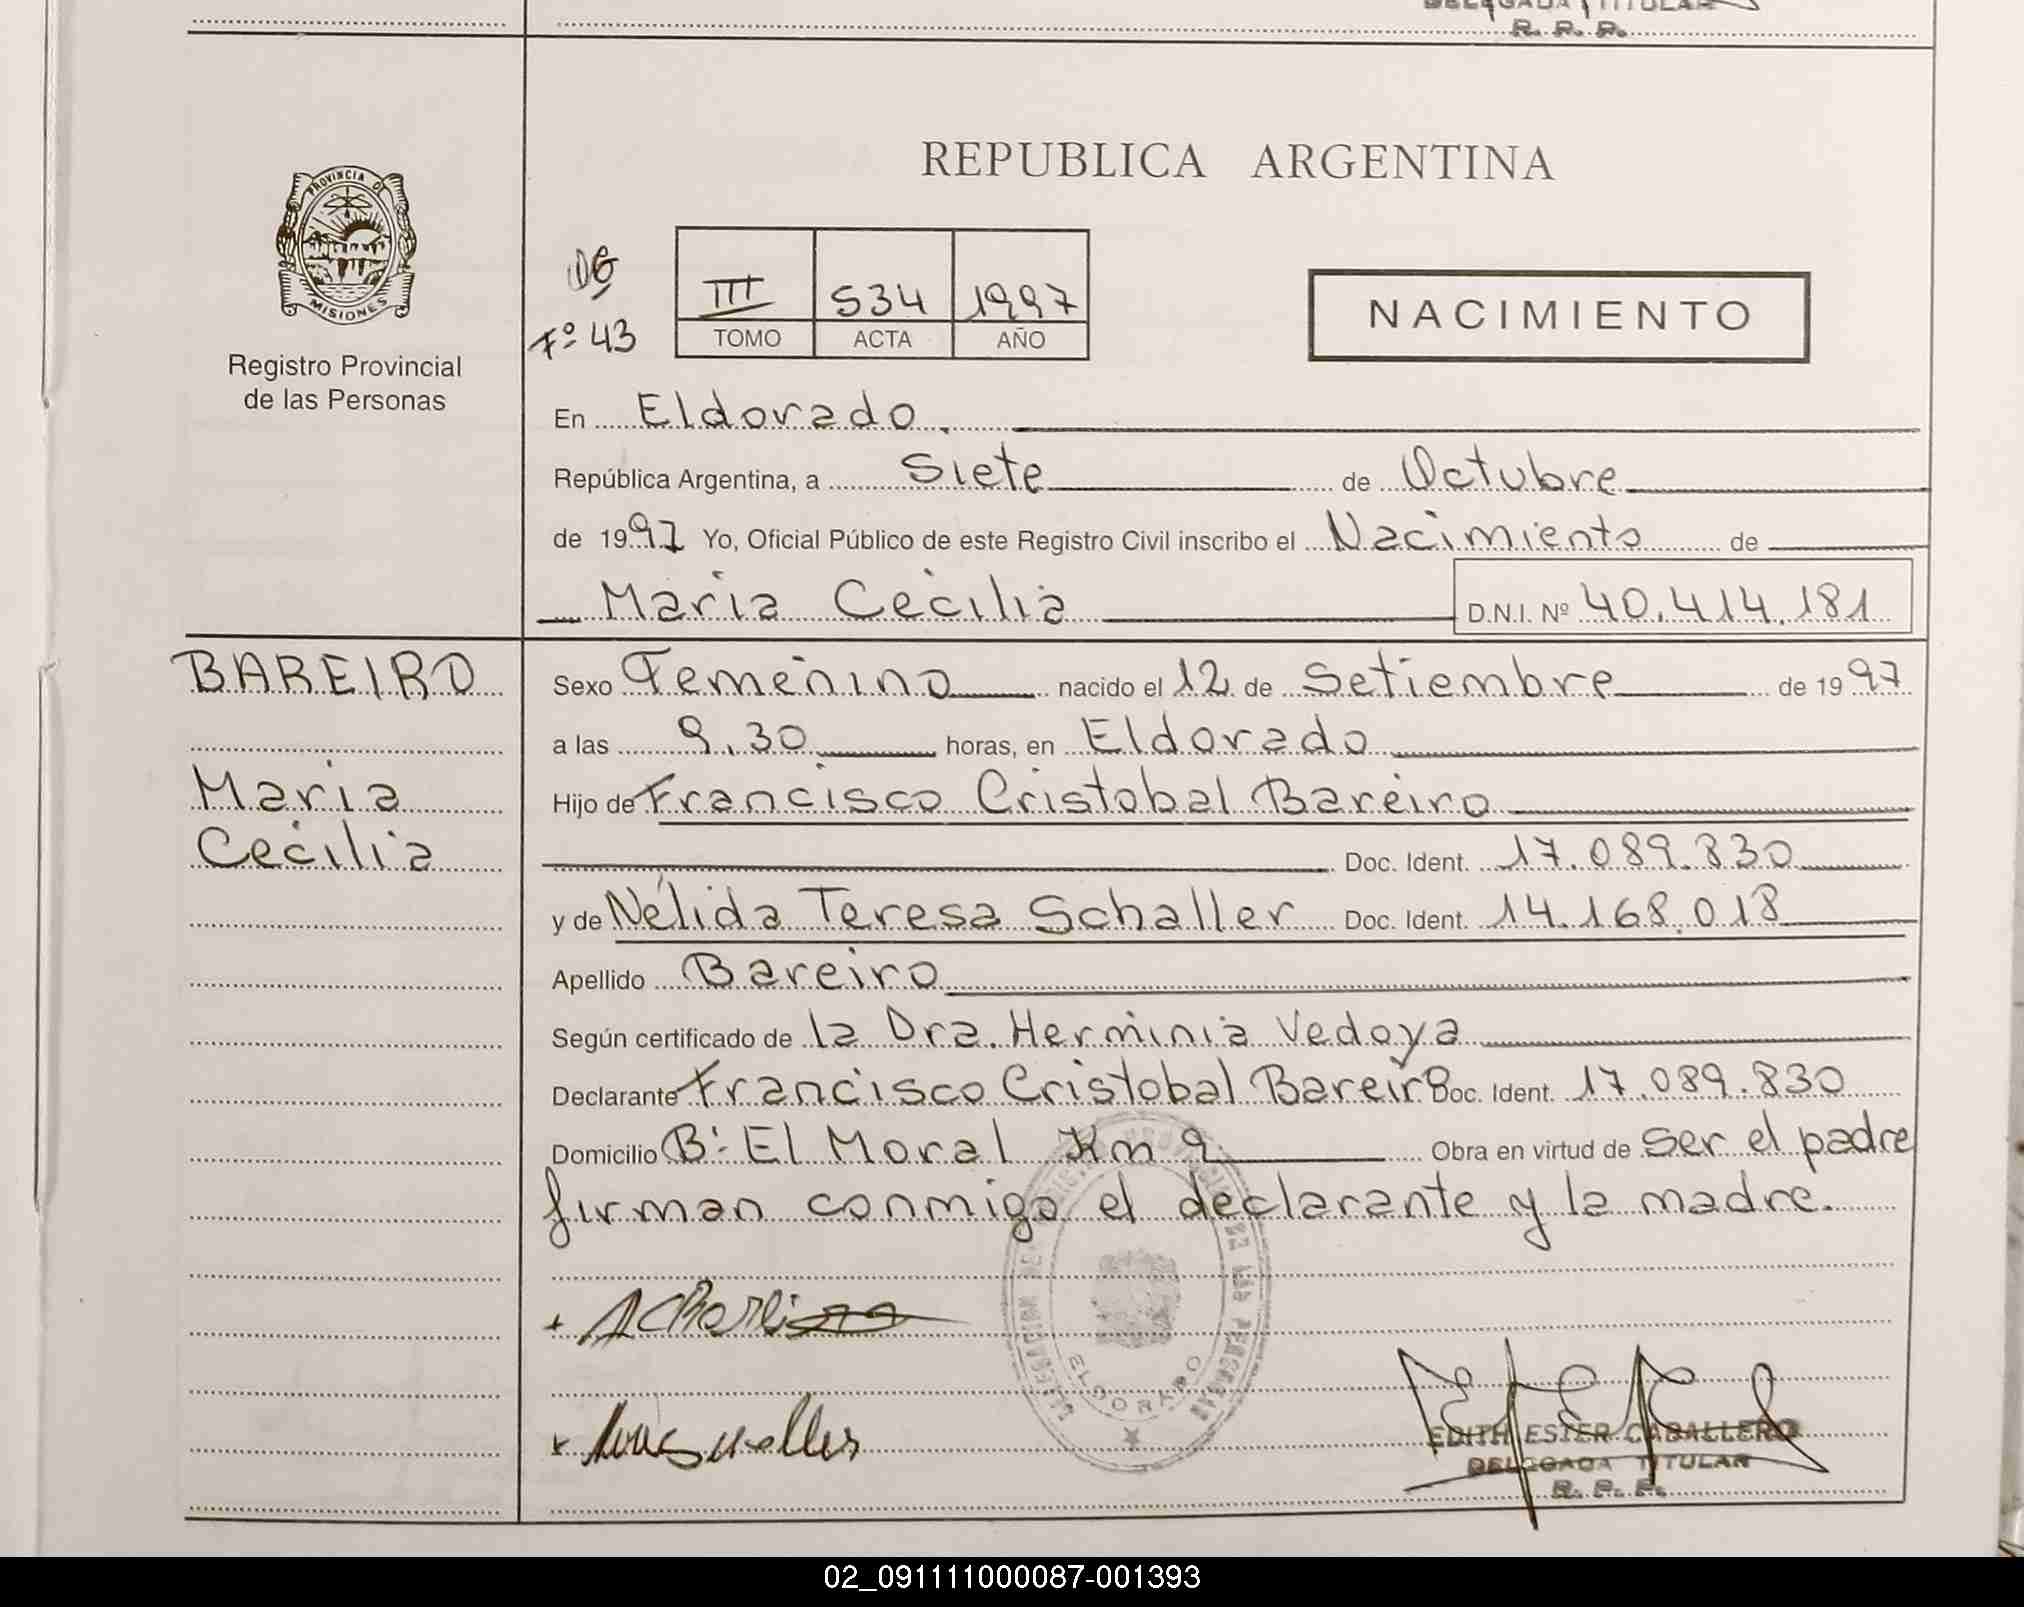 DELEGADA TITULAR
R. P. P.
REPUBLICA ARGENTINA
PROVINCIA DE
MISIONES
Registro Provincial
de las Personas
Fº 43
III 534 1997
TOMO ACTA AÑO
NACIMIENTO
En Eldorado.
República Argentina, a Siete de Octubre
de 1997 Yo, Oficial Público de este Registro Civil inscribo el Nacimiento de
Maria Cecilia D.N.I. Nº 40.414.181
BAREIRO
Maria
Cecilia
Sexo Femenino nacido el 12 de Setiembre de 1997
a las 9.30 horas, en Eldorado
Hijo de Francisco Cristobal Bareiro
Doc. Ident. 17.089.830
y de Nélida Teresa Schaller Doc. Ident. 14.168.018
Apellido Bareiro
Según certificado de la Dra. Herminia Vedoya
Declarante Francisco Cristobal Bareiro Doc. Ident. 17.089.830
Domicilio B: El Moral Km 9 Obra en virtud de ser el padre
firman conmigo el declarante y la madre.
ELDORADO
EDITH ESTER CABALLERO
DELEGADA TITULAR
R. P. P.
02_091111000087-001393